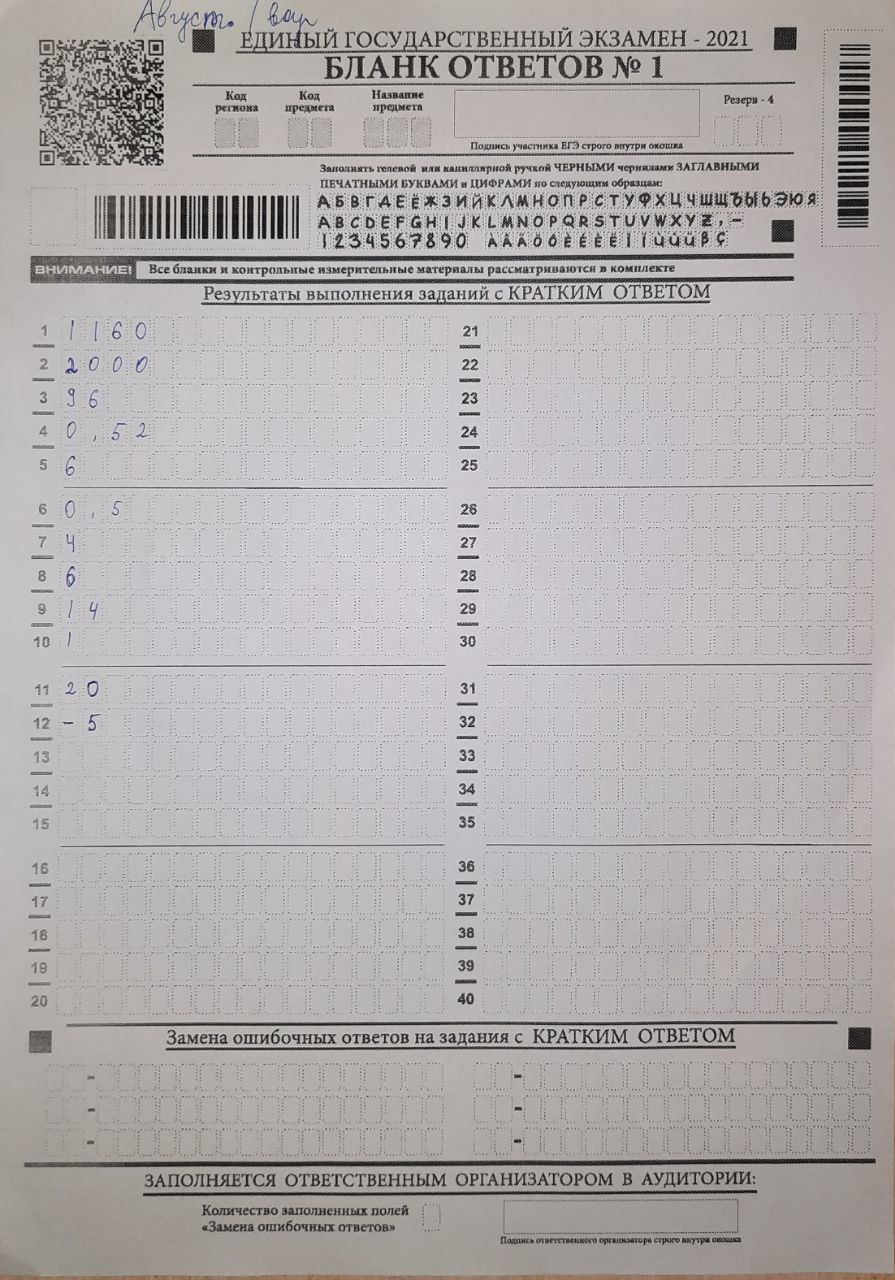 Август. 1 вар
ЕДИНЫЙ ГОСУДАРСТВЕННЫЙ ЭКЗАМЕН - 2021
БЛАНК ОТВЕТОВ № 1
Код региона
Код предмета
Название предмета
Резерв - 4
Подпись участника ЕГЭ строго внутри окошка
Заполнять гелевой или капиллярной ручкой ЧЕРНЫМИ чернилами ЗАГЛАВНЫМИ
ПЕЧАТНЫМИ БУКВАМИ и ЦИФРАМИ по следующим образцам:
АБВГДЕЁЖЗИЙКЛМНОПРСТУФХЦЧШЩЪЫЬЭЮЯ
ABCDEFGHIJKLMNOPQRSTUVWXYZ,-
1234567890
ВНИМАНИЕ! Все бланки и контрольные измерительные материалы рассматриваются в комплекте
Результаты выполнения заданий с КРАТКИМ ОТВЕТОМ
1 1160 21
2 2000 22
3 96 23
4 0,52 24
5 6 25
6 0,5 26
7 4 27
8 6 28
9 14 29
10 1 30
11 20 31
12 -5 32
13 33
14 34
15 35
16 36
17 37
18 38
19 39
20 40
Замена ошибочных ответов на задания с КРАТКИМ ОТВЕТОМ
- -
- -
- -
ЗАПОЛНЯЕТСЯ ОТВЕТСТВЕННЫМ ОРГАНИЗАТОРОМ В АУДИТОРИИ:
Количество заполненных полей
«Замена ошибочных ответов»
Подпись ответственного организатора строго внутри окошка